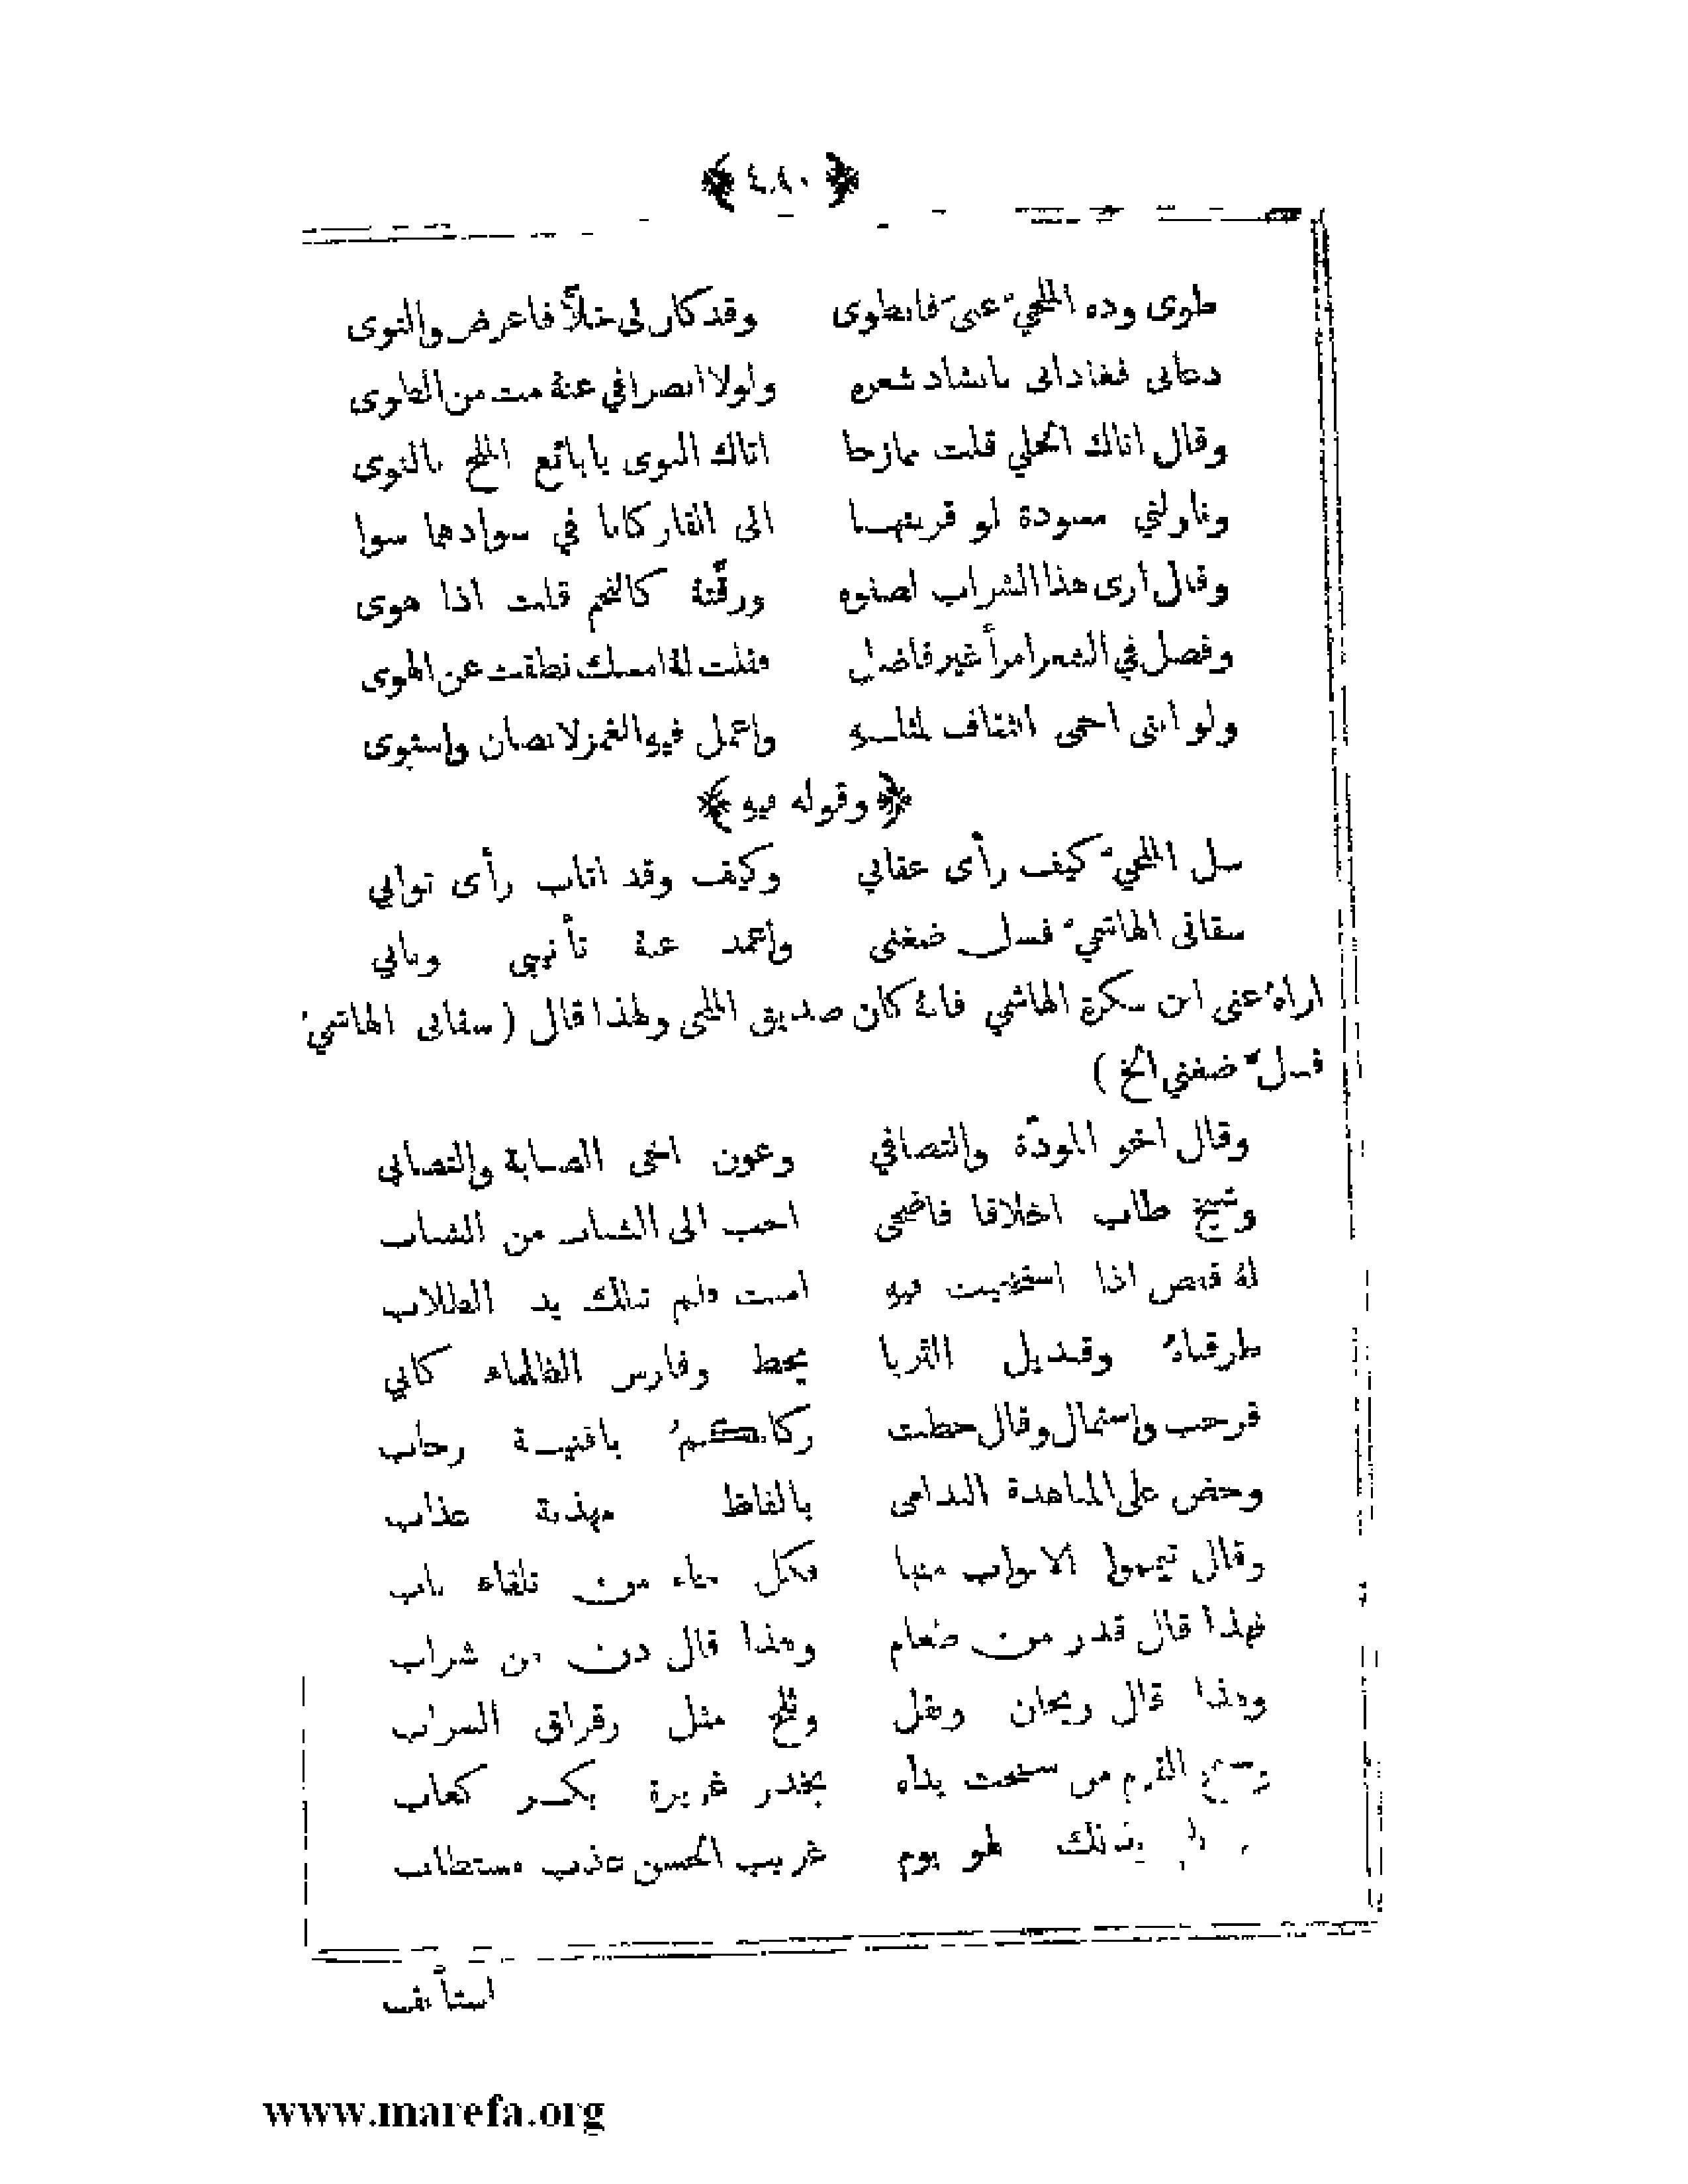 طوى وده الملحيّ عنى فانطوى وقد كان لى خلاًّ فاعرض والتوى
دعانى فغادانى بانشاد شعره ولولا انصرافي عنهُ مت من الطوى
وقال اتاك الحلي قلت ممازحا اتاك النوى يا بائع الملح بالنوى
وناولني مسودة لو قرينهـا الى القار كانا في سوادهما سوا
وقال ارى هذا الشراب لصفوه ورقّته كالنجم قلت اذا هوى
وفصل في الشعر امرأ غير فاضل فقلت لهُ امسك نطقت عن الهوى
ولو اننى احمى الثقاف لمثلـه واعمل فيه الغمز لانصان واستوى
﴿ وقوله فيه ﴾
سل الملحيّ كيف رأى عقابي وكيف وقد اثاب رأى ثوابي
سقانى الهاشميّ فسل ضغنى واغمد عنهُ تأنيبي ونابي
اراهُ عنى ابن سكرة الهاشمي فانهُ كان صديق الملحى ولهذا قال ( سقانى الهاشميّ
فسلّ ضغني الخ )
وقال اخو المودّة والتصافي وعون اخى الصبابة والتصابي
وشيخ طاب اخلاقا فاضحى احب الى الشباب من الشباب
لهُ قفص اذا استخفيت فيه امنت فلم تنلك يد الطلاب
طرقناهُ وقنديل الثريا يحط وفارس الظلماء كابي
فرحب واستمال وقال حطت ركابكـمُ بافنيـة رحاب
وحض على المناهدة الندامى بالفاظ مهذبة عذاب
وقال تيمموا الابواب منها فكل جاء من تلقاء باب
فهذا قال قدر من طعام وهذا قال دن من شراب
وهذا قال ريحان ونقل وثلج مثل رقراق السراب
القوم من سنحت يداه بخدر غريرة بكـر كعاب
بذلك لهو يوم غريب الحسن عذب مستطاب
www.marefa.org